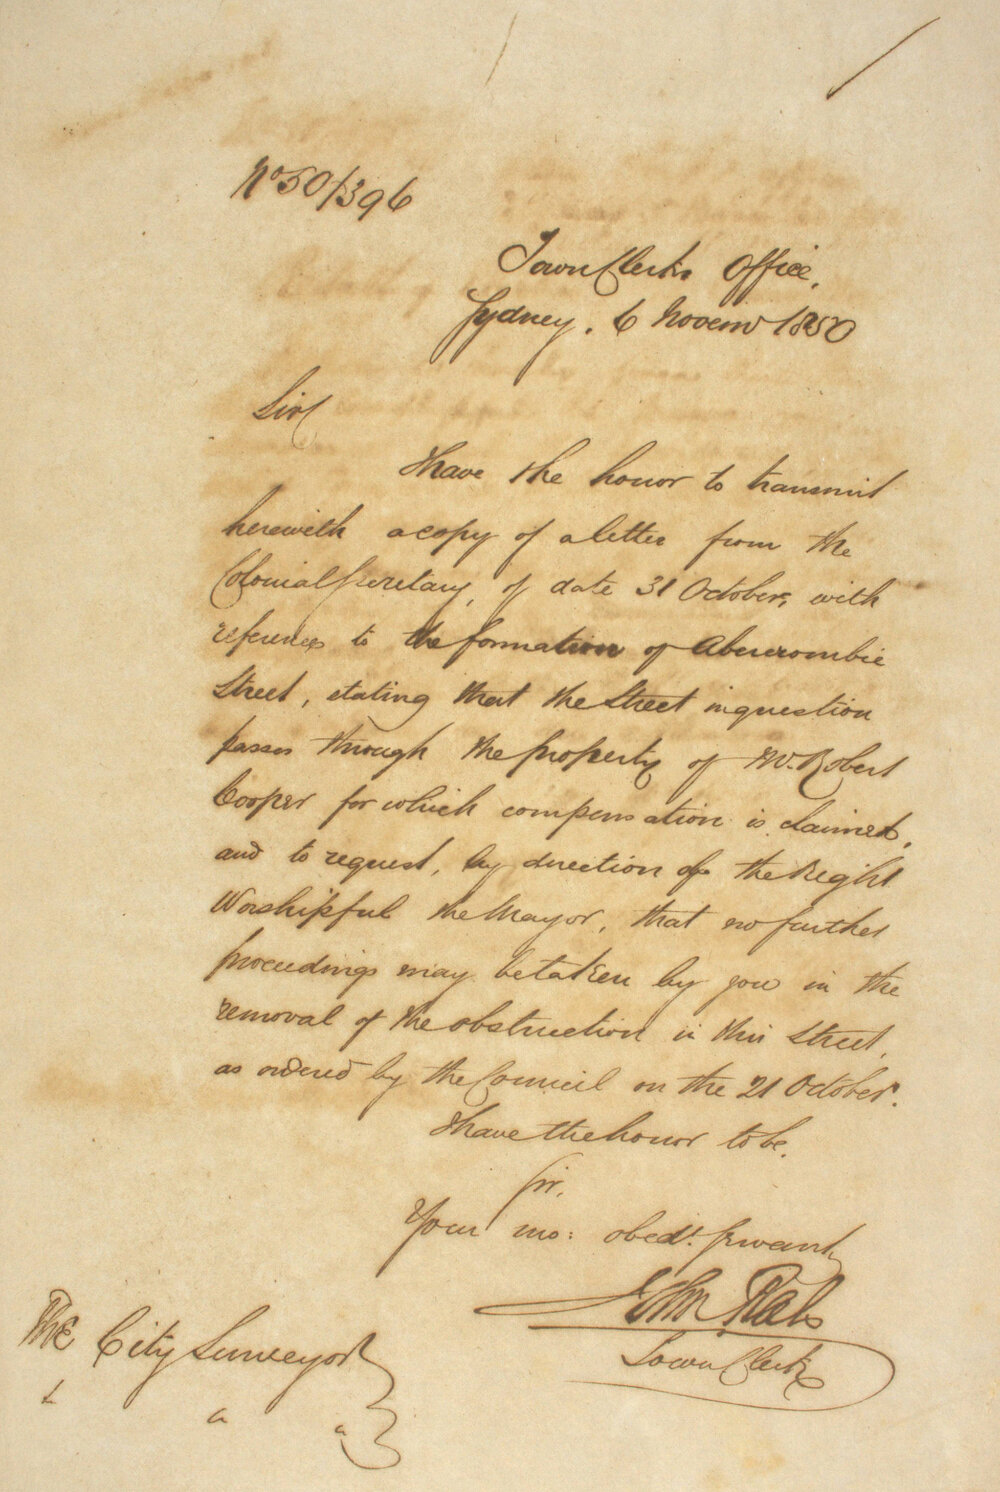 No 50/396
Town Clerks Office,
Sydney. 6 Novem 1850
Sir
I have the honor to transmit
herewith a copy of a letter from the
Colonial Secretary, of date 31 October, with
reference to the formation of Abercrombie
Street, stating that the Street in question
passes through the property of Mr. Robert
Cooper for which compensation is claimed,
and to request, by direction of the Right
Worshipful the Mayor, that no further
proceedings may be taken by you in the
removal of the obstruction in this Street,
as ordered by the Council on the 21 October.
I have the honor to be,
Sir,
Your mo: obedt. Servant
John
Town Clerk
The City Surveyor